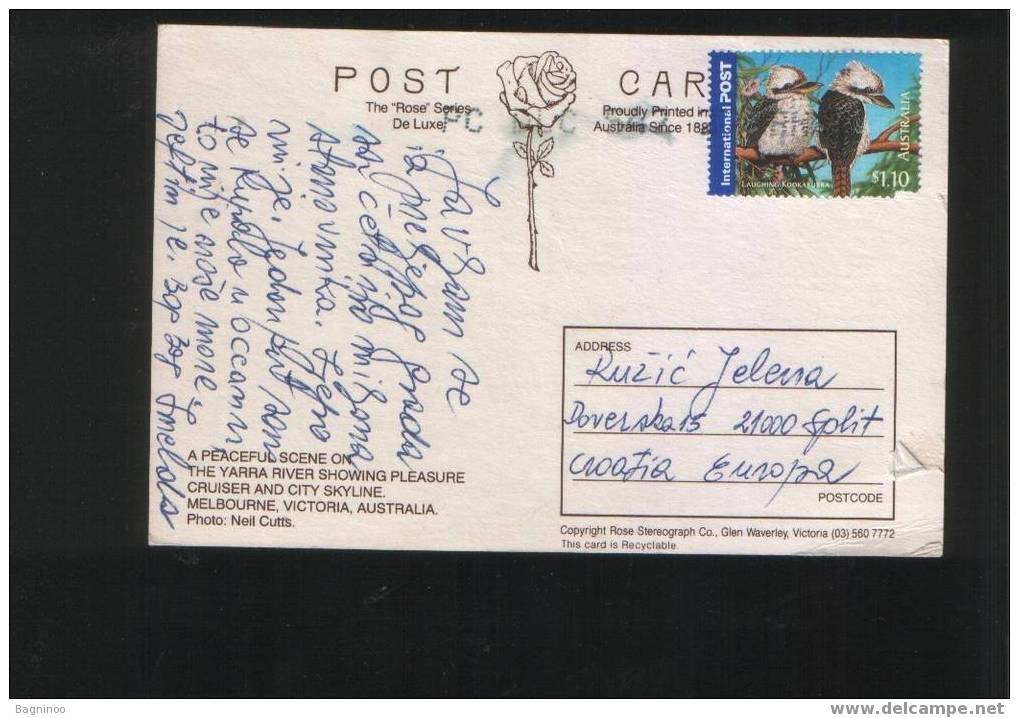 POST CAR
The "Rose" Series
De Luxe
Proudly Printed in
Australia Since 188
International POST
LAUGHING KOOKABURRA
AUSTRALIA
$1.10
Javljam se
iz grada
miliona
stanovnika.
Jedan put sam
se kupala u oceanu
to nije naše more,
A PEACEFUL SCENE ON
THE YARRA RIVER SHOWING PLEASURE
CRUISER AND CITY SKYLINE.
MELBOURNE, VICTORIA, AUSTRALIA.
Photo: Neil Cutts.
ADDRESS
Ružić Jelena
Doverska 15 21000 Split
Croatia Europa
POSTCODE
Copyright Rose Stereograph Co., Glen Waverley, Victoria (03) 560 7772
This card is Recyclable.
Bagninoo
www.delcampe.net